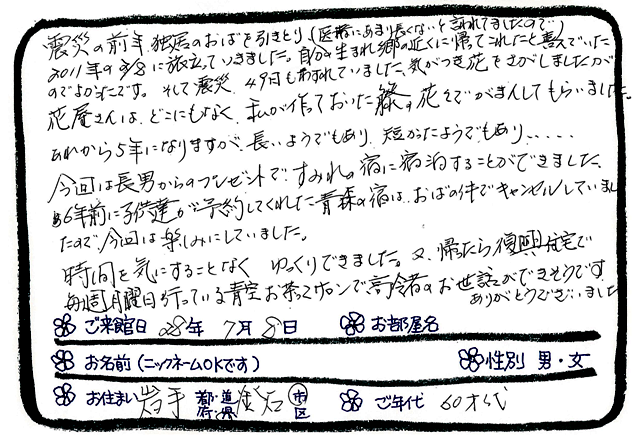 震災の前年、独居のおばを引きとり（医者にあまり長くないと言われてましたので）
2011年の3/8に旅立っていきました。自分の生まれ郷の近くに帰ってこれたと喜んでいた
のでよかったです。そして震災、49日もわすれていました、気がつき花をさがしましたが
花屋さんは、どこにもなく、私が作っておいた籐の花でがまんしてもらいました。
あれから5年になりますが、長いようでもあり、短かったようでもあり、‥‥‥
今回は長男からのプレゼントで、すみれの宿に宿泊することができました、
6年前に子供達が予約してくれた青森の宿は、おばの件でキャンセルしていまし
たので、今回は楽しみにしていました。
時間を気にすることなく ゆっくりできました。又、帰ったら復興住宅で
毎週月曜日行っている青空お茶っこサロンで、高令者のお世話ができそうです
ありがとうございました
ご来館日 28年 7月 8日 お部屋名
お名前（ニックネームOKです） 性別 男・女
お住まい 岩手 都道府県 釜石 市区 ご年代 60才代